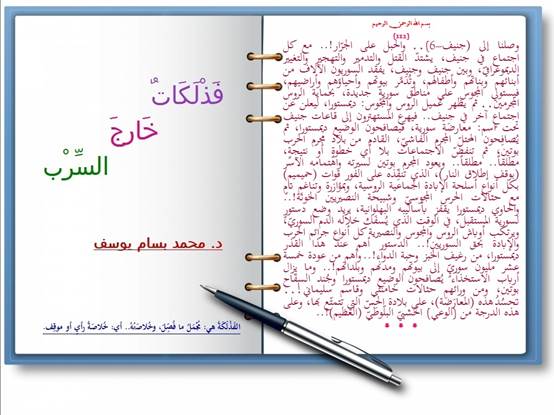 بسم الله الرحمن الرحيم
(112)
وصلنا إلى (جنيف–6).. والحبل على الجرّار!.. مع كل
اجتماع في جنيف، يشتدّ القتل والتدمير والتهجير والتغيير
الديموغرافيّ، وبين جنيف وجنيف، يفقد السوريون الآلاف من
أبنائهم وبناتهم وأطفالهم، وتُدمَّر بيوتهم وأحياؤهم وأراضيهم،
فيستولي المجوس على مناطق سورية جديدة، بحماية الروس
المجرمين.. ثم يظهر عميل الروس والمجوس: ديمستورا، ليعلن عن
اجتماع آخر في جنيف.. فيهرع المستهترون إلى قاعات جنيف
تحت اسم: معارضة سورية، فيصافحون الوضيع ديمستورا، ثم
يُصافحون المحتل المجرم الفاشيّ، القادم من بلاد مجرم الحرب
بوتين، ثم تنفضّ الاجتماعات بلا أي خطوةٍ أو نتيجة،
مطلقاً.. مطلقاً.. ويعود المجرم بوتين لسيرته واهتمامه الآسر
(بوقف إطلاق النار)، الذي تنفّذه على الفور قوات (حميميم)
بكل أنواع أسلحة الإبادة الجماعية الروسية، وبمؤازرة وتناغم تام
مع حثالات الحرس المجوسيّ وشبيحة النصيريين الخونة!..
والحاوي ديمستورا يقفز بأساليبه البهلوانية، يريد وضع دستور
لسورية المستقبل، في الوقت الذي يُسفَك خلاله الدم السوريّ،
ويرتكب أوباش الروس والمجوس والنصيرية كل أنواع جرائم الحرب
والإبادة بحق السوريين!.. الدستور أهم عند هذا القذر
ديمستورا، من رغيف الخبز وحبة الدواء!.. وأهم من عودة خمسة
عشر مليون سوريّ إلى بيوتهم ومدنهم وبلداتهم!.. وما يزال
أرباب الاستخذاء يُصافحون الوضيع ديمستورا وجُند السفّاح
بوتين، ومن ورائهم حثالات خامنئي وقاسم سليماني!..
تحسدُ هذه (المعارضة)، على بلادة الحسّ التي تتمتّع بها، وعلى
هذه الدرجة من (الوعي) الخشبيّ البلّوطيّ (العظيم)!..
فَذْلَكَاتٌ
خَارِجَ
السِّرْب
د. محمد بسام يوسف
الفَذْلَكَةُ هي: مُجْمَلُ ما فُصِّلَ، وخُلاصَتُهُ.. أي: خُلاصَةُ رأيٍ أو موقِف.